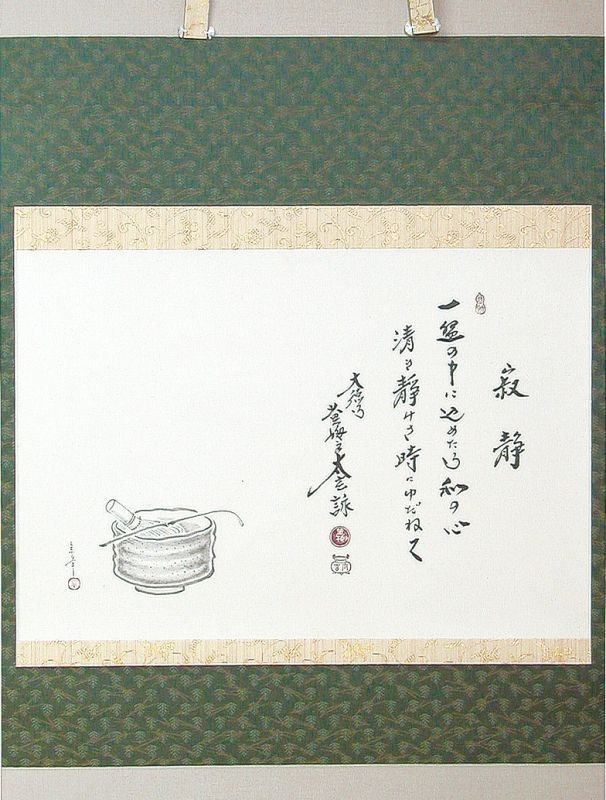 寂静
一盌の中に込めたる和の心
清き静けき時にゆだねて
大徳寺
黄梅子太玄詠